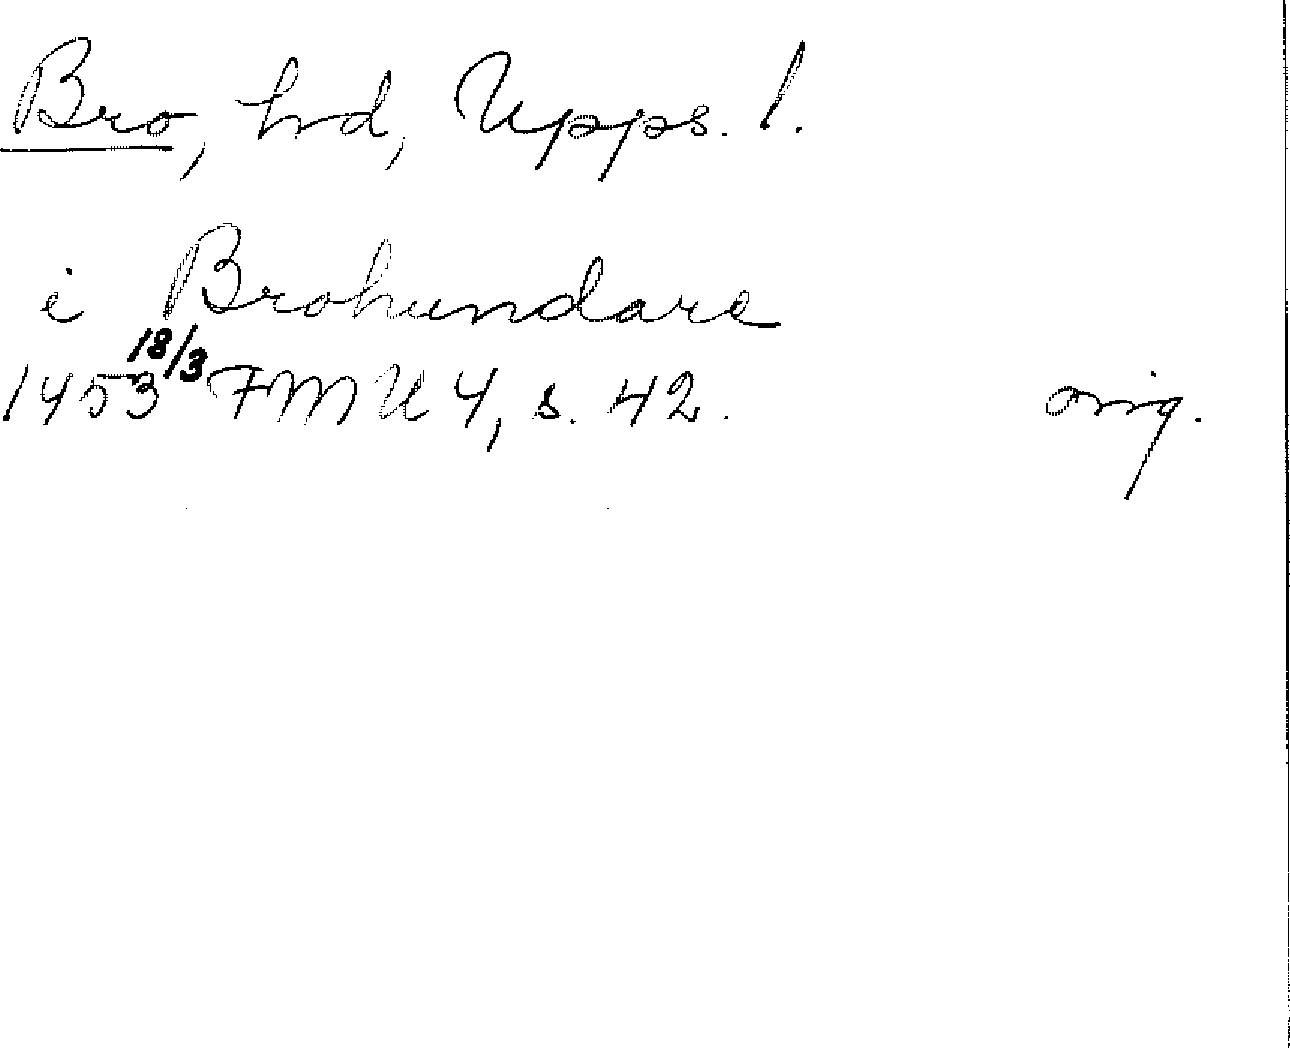 Bro, hd, Upps. l.
i Brohundare
1453 18/3 FMU 4, s. 42. orig.